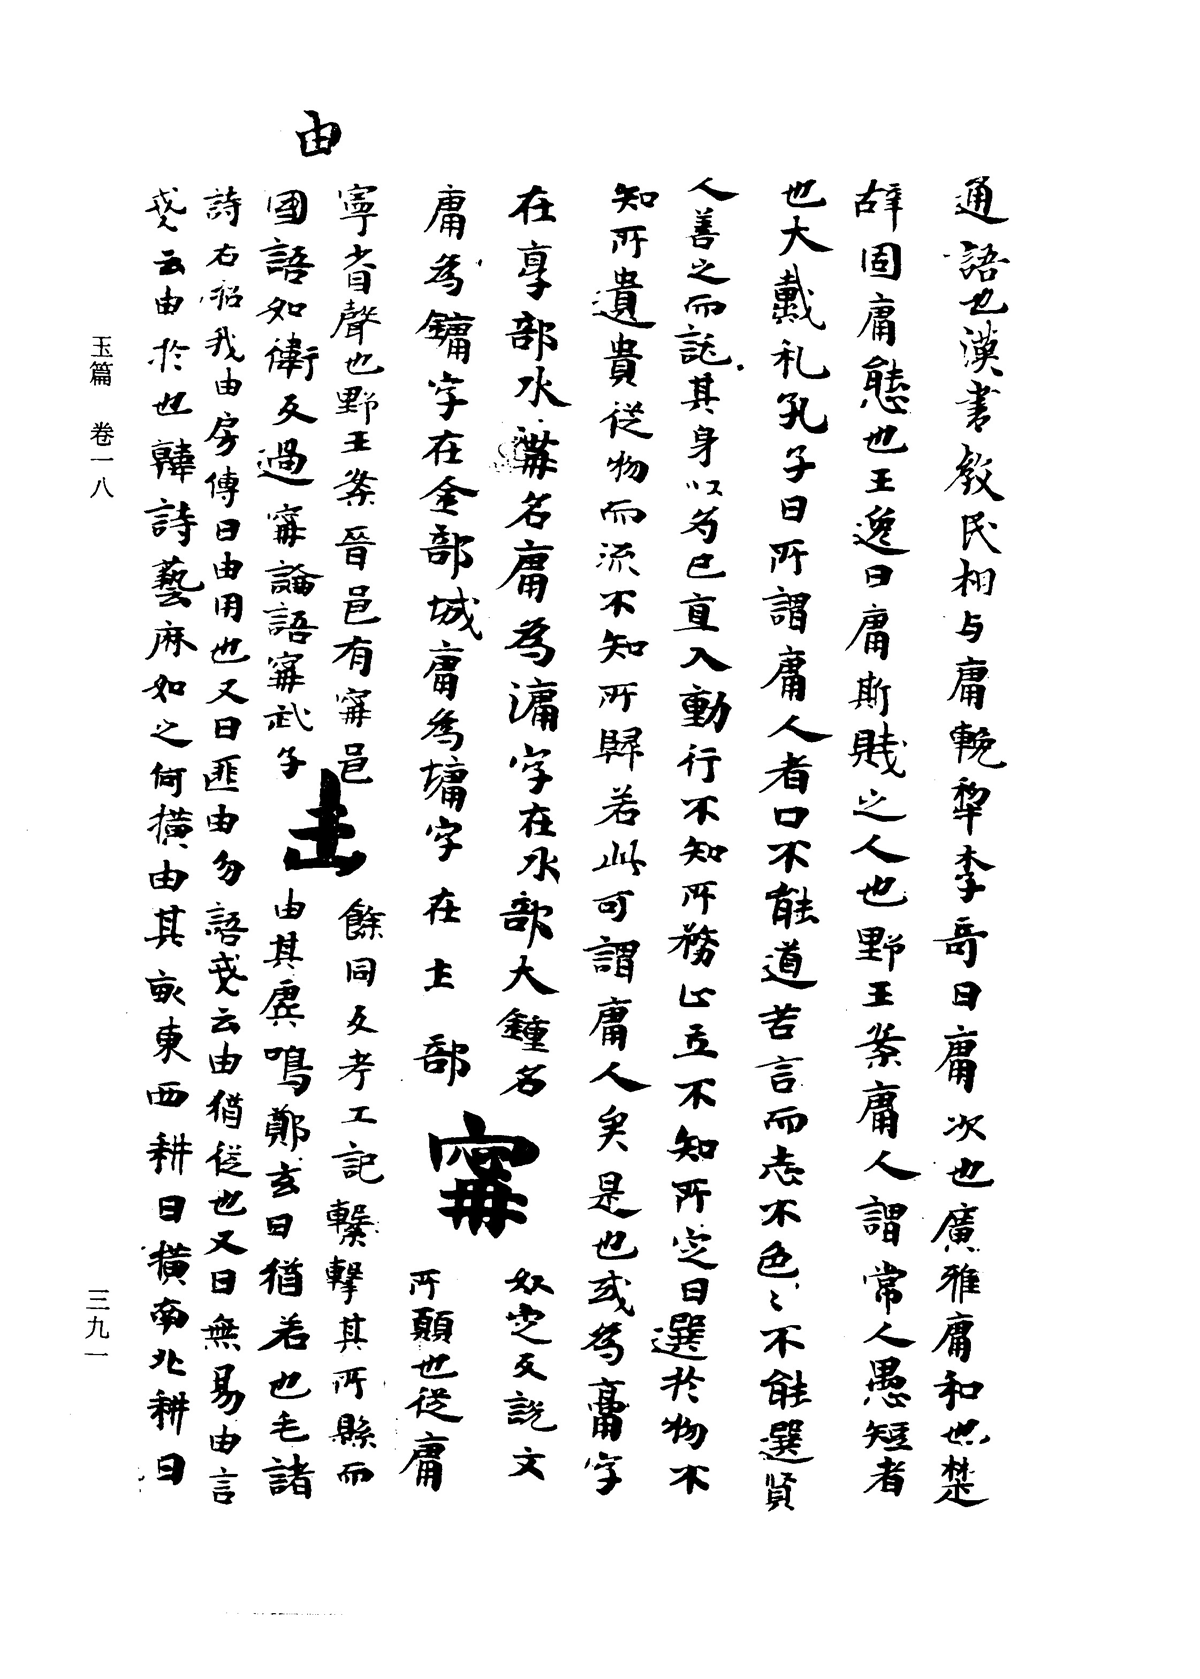 通語也漢書教民相与庸輓犂李哥曰庸次也廣雅庸和也楚
辞固庸態也王逸曰庸斯賎之人也野王案庸人謂常人愚短者
也大戴礼孔子曰所謂庸人者口不能道苦言而志不色〻不能選賢
人善之而託其身以为已直入動行不知所務止立不知所定日選於物不
知所遺貴從物而流不知所歸若此可謂庸人矣是也或為𠅬字
在享部水滿名庸為滽字在水部大鍾名
庸為鏞字在金部城庸為墉字在土部
甯
奴定反説文
所願也從庸
寧省聲也野王案晉邑有甯邑
國語如衛反過甯論語甯武子
由
餘同反考工記繋擊其所縣而
由其虡鳴鄭玄曰猶若也毛諸
詩右招我由房傳曰由用也又曰匪由勿語戔云由猶從也又曰無易由言
戔云由於也韓詩藝麻如之何横由其畝東西耕曰横南北耕曰
由
玉篇 卷一八
三九一